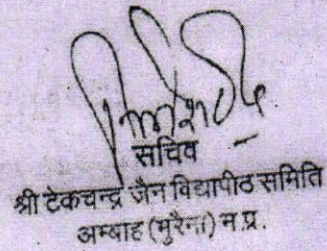 सचिव
श्री टेकचन्द्र जैन विद्यापीठ समिति
अम्बाह (मुरैना) म.प्र.